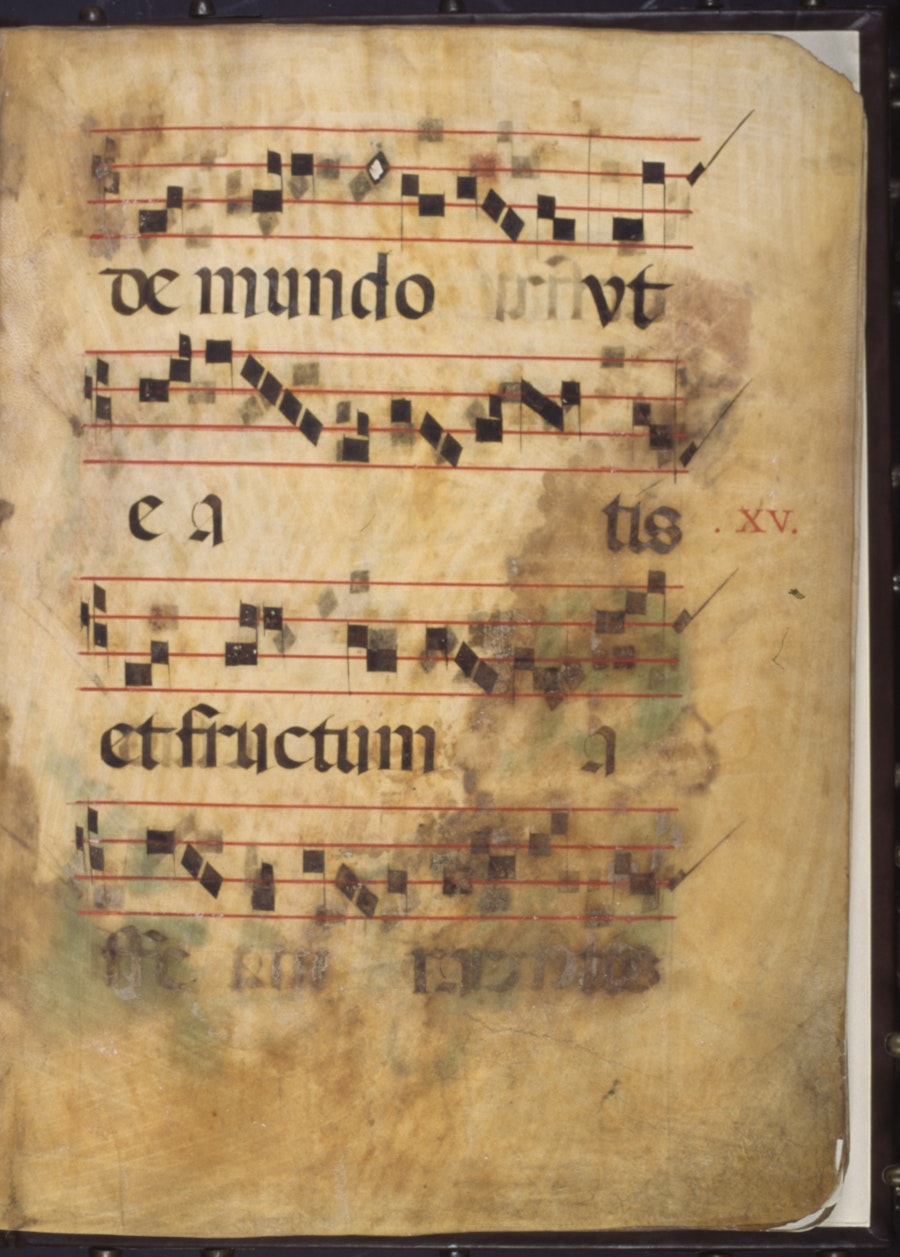 de mundo vt
e a tis . XV.
et fructum a
ffe